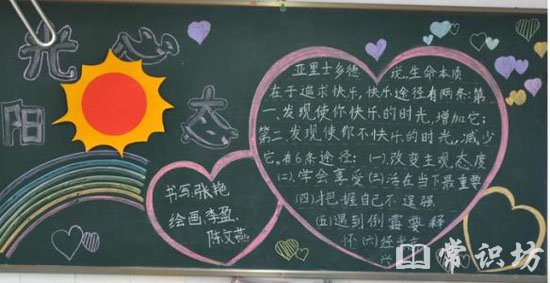 阳光心态
亚里士多德 说,生命本质
在于追求快乐,快乐途径有两条:第
一、发现使你快乐的时光,增加它;
第二、发现使你不快乐的时光,减少
它,有6条途径:(一)、改变主观态度
(二)、学会享受(三)活在当下最重要
(四)把握自己不逞强
(五)遇到倒霉要释
怀(六)经常
书写:张艳
绘画:李盈、
陈文燕
常识坊